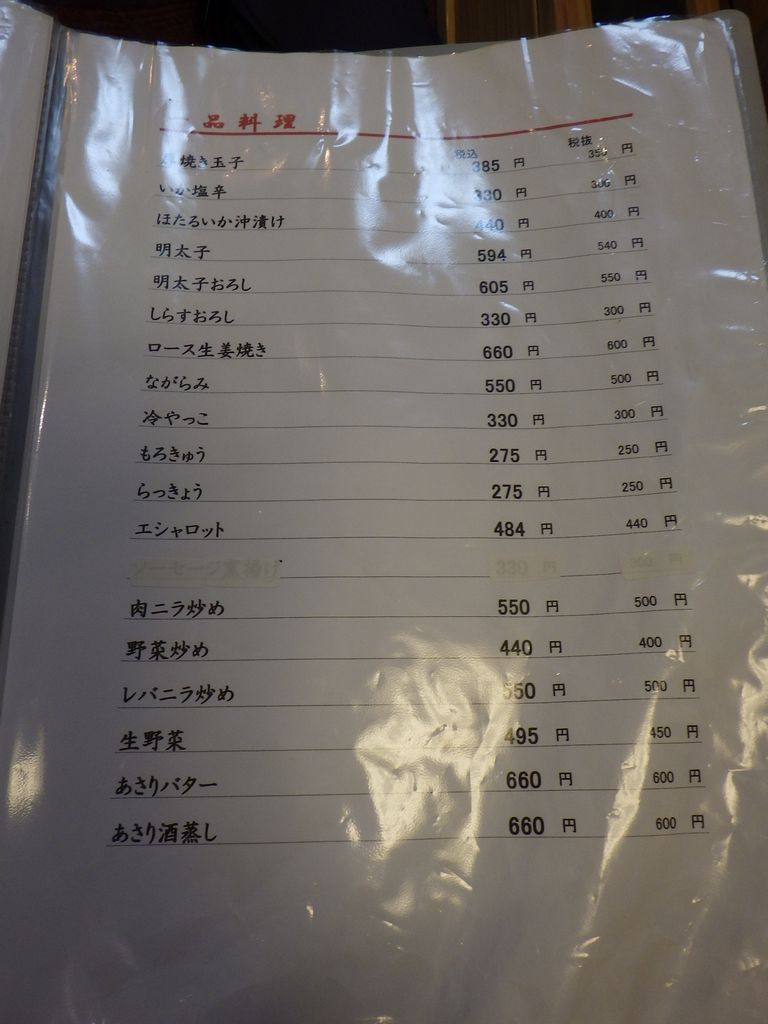 一品料理
税込 税抜
焼き玉子 385 円 350 円
いか塩辛 330 円 300 円
ほたるいか沖漬け 440 円 400 円
明太子 594 円 540 円
明太子おろし 605 円 550 円
しらすおろし 330 円 300 円
ロース生姜焼き 660 円 600 円
ながらみ 550 円 500 円
冷やっこ 330 円 300 円
もろきゅう 275 円 250 円
らっきょう 275 円 250 円
エシャロット 484 円 440 円
ソーセージ 330 円 300 円
肉ニラ炒め 550 円 500 円
野菜炒め 440 円 400 円
レバニラ炒め 550 円 500 円
生野菜 495 円 450 円
あさりバター 660 円 600 円
あさり酒蒸し 660 円 600 円